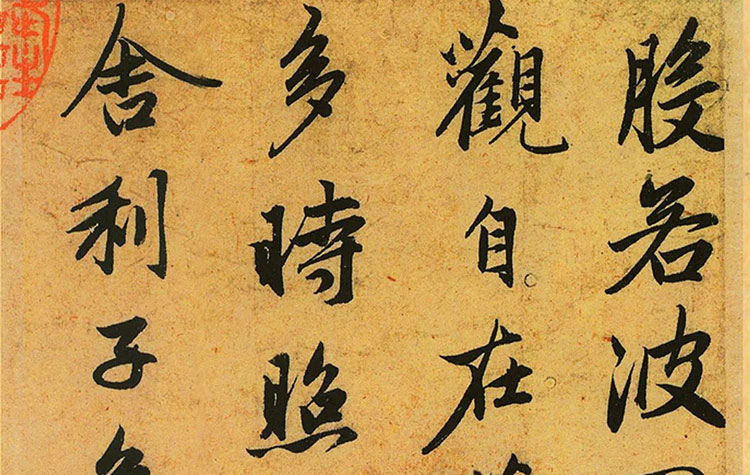 般若波
觀自在
多時照
舍利子色